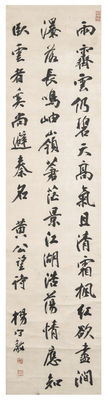 雨霽雲仍碧天高氣且清霜紅欲盡澗
瀑落長鳴岫嶺蒼茫景江湖浩蕩情應知
臥雲者奚尚避秦名 黃公望詩 楊守敬